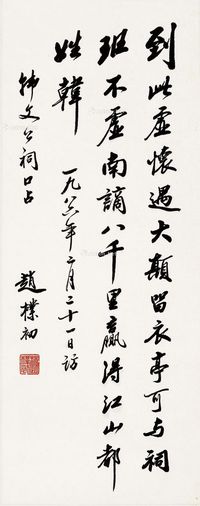 到此虛懷遇大顛留衣亭可与祠
班不虛南謫八千里贏得江山都
姓韓
一九八六年二月二十一日訪
韩文公祠口占
趙樸初